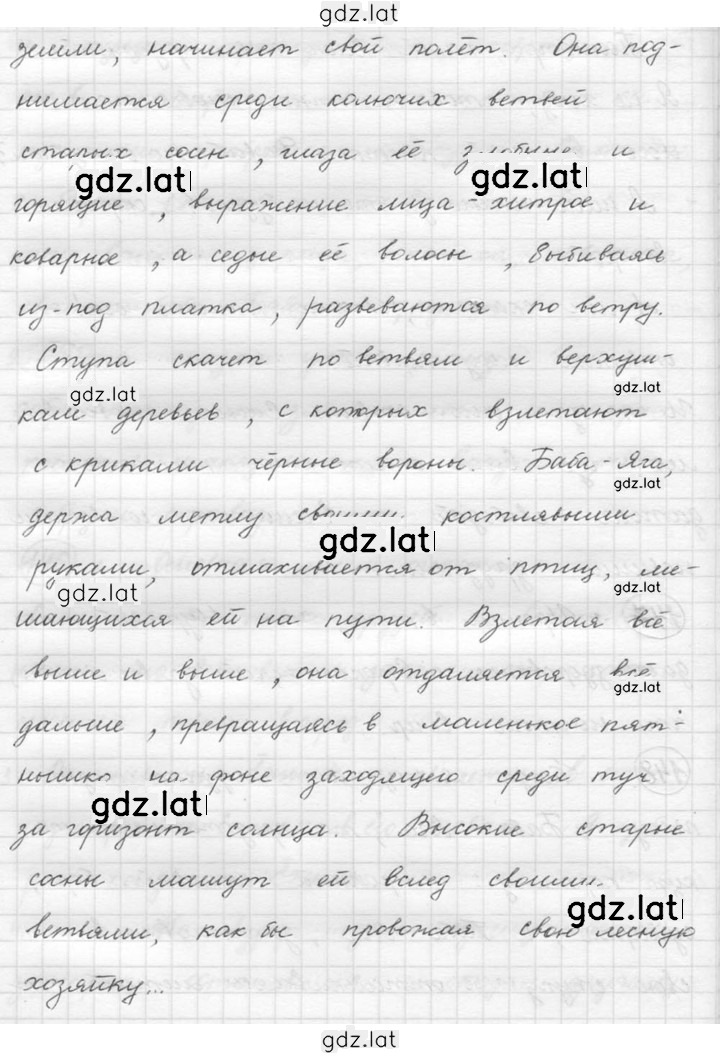 gdz.lat
земли, начинает свой полёт. Она под-
нимается среди колючих ветвей
старых сосен, глаза её злобные и
gdz.lat
gdz.lat
горящие, выражение лица - хитрое и
коварное, а седые её волосы, выбиваясь
из-под платка, развеваются по ветру.
Ступа скачет по ветвям и верхуш-
gdz.lat
gdz.lat
кам деревьев, с которых взлетают
с криками чёрные вороны. Баба-Яга,
gdz.lat
держа метлу своими костлявыми
gdz.lat
руками, отмахивается от птиц, ме-
gdz.lat
gdz.lat
шающихся ей на пути. Взлетая всё
выше и выше, она отдаляется всё
gdz.lat
дальше, превращаясь в маленькое пят-
нышко на фоне заходящего среди туч
gdz.lat
за горизонт солнца. Высокие старые
сосны машут ей вслед своими
gdz.lat
ветвями, как бы провожая свою лесную
хозяйку...
gdz.lat